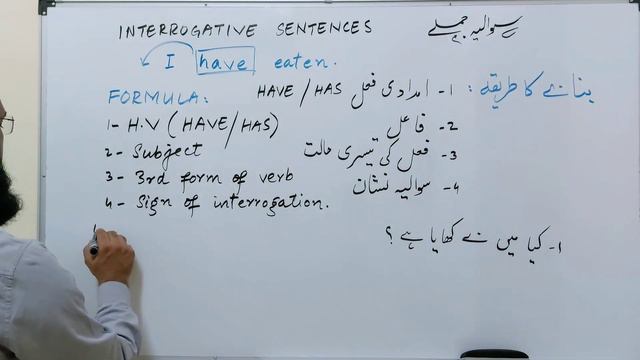 INTERROGATIVE SENTENCES سوالیہ جملے
I have eaten.
FORMULA:
بنانے کا طریقہ :
1- H.V (HAVE/HAS)
2- Subject
3- 3rd form of verb
4- Sign of interrogation.
۱- امدادی فعل HAVE/HAS
۲- فاعل
۳- فعل کی تیسری حالت
۴- سوالیہ نشان
۱- کیا میں نے کھایا ہے ؟